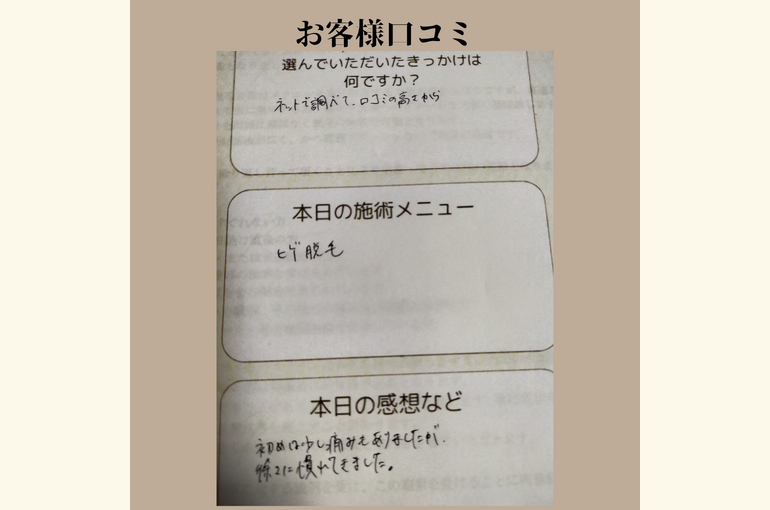 お客様口コミ
選んでいただいたきっかけは
何ですか？
ネットで調べて、口コミの高さから
本日の施術メニュー
ヒゲ脱毛
本日の感想など
初めは少し痛みもありましたが、
徐々に慣れてきました。